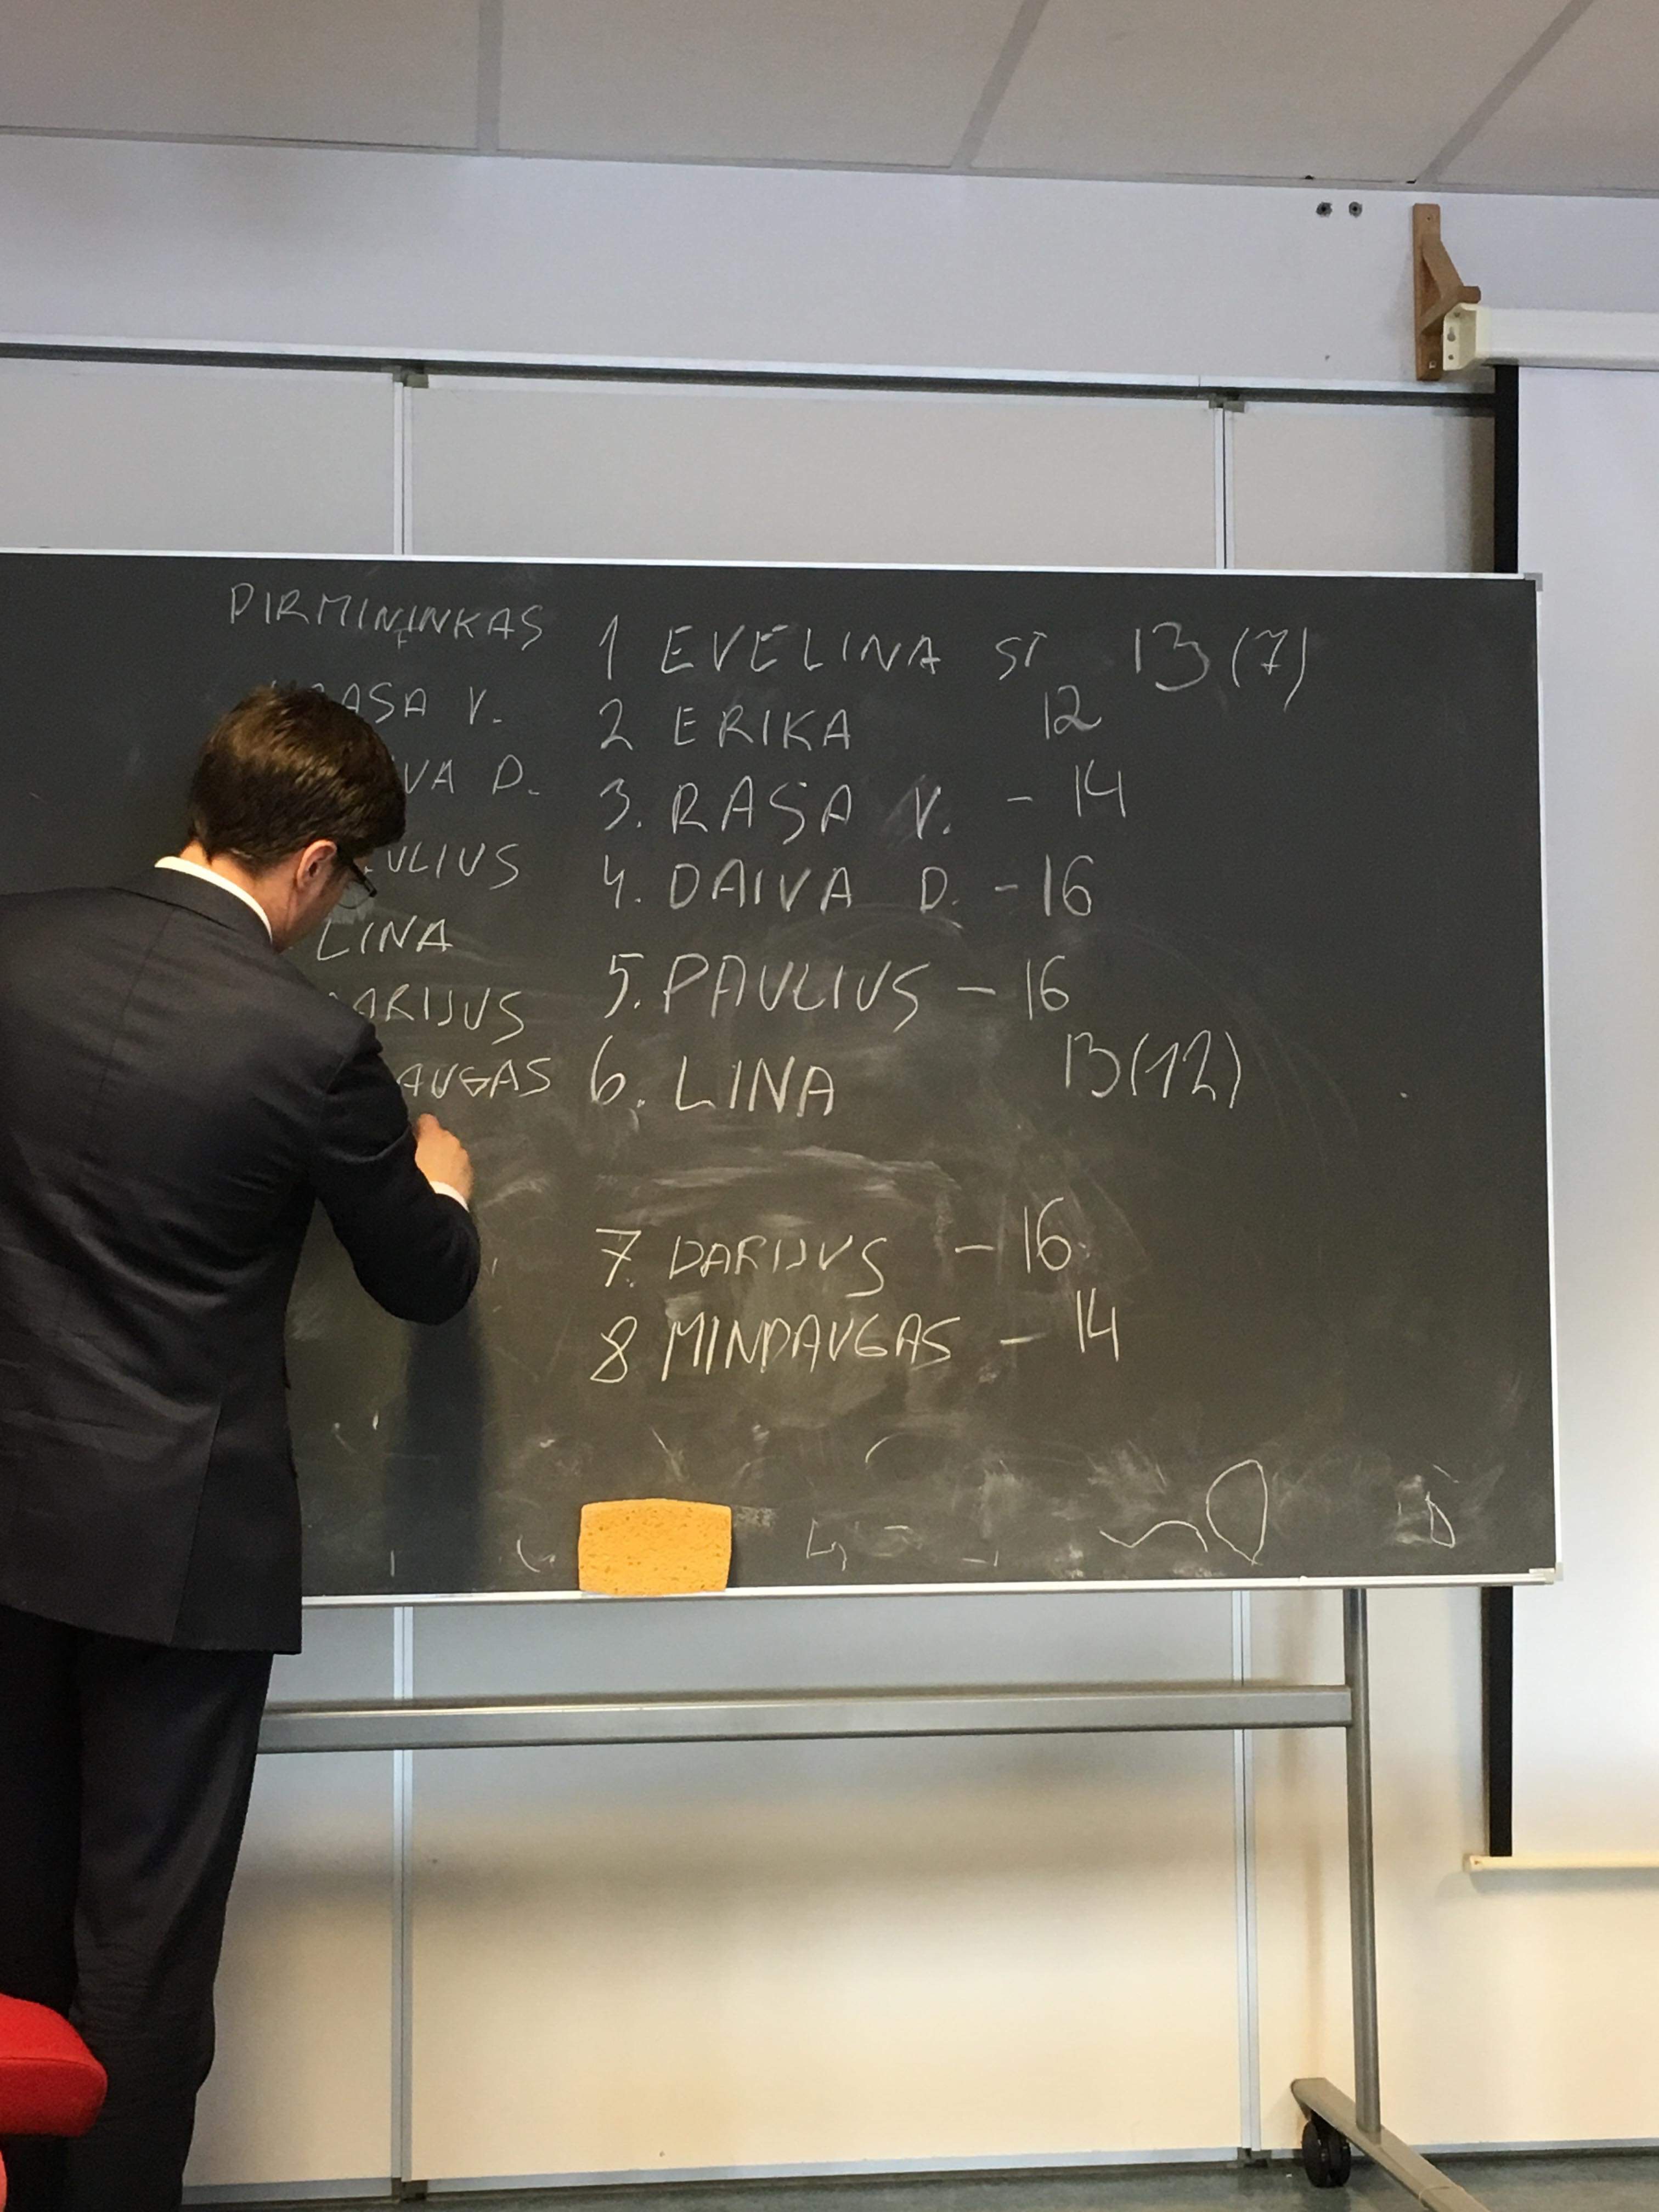 PIRMININKAS
RASA V.
D.
LINA
1 EVELINA ST 13 (7)
2 ERIKA 12
3. RASA V. - 14
4. DAIVA D. - 16
5. PAULIUS - 16
6. LINA 13 (12)
7. DARIJUS - 16
8 MINDAUGAS - 14